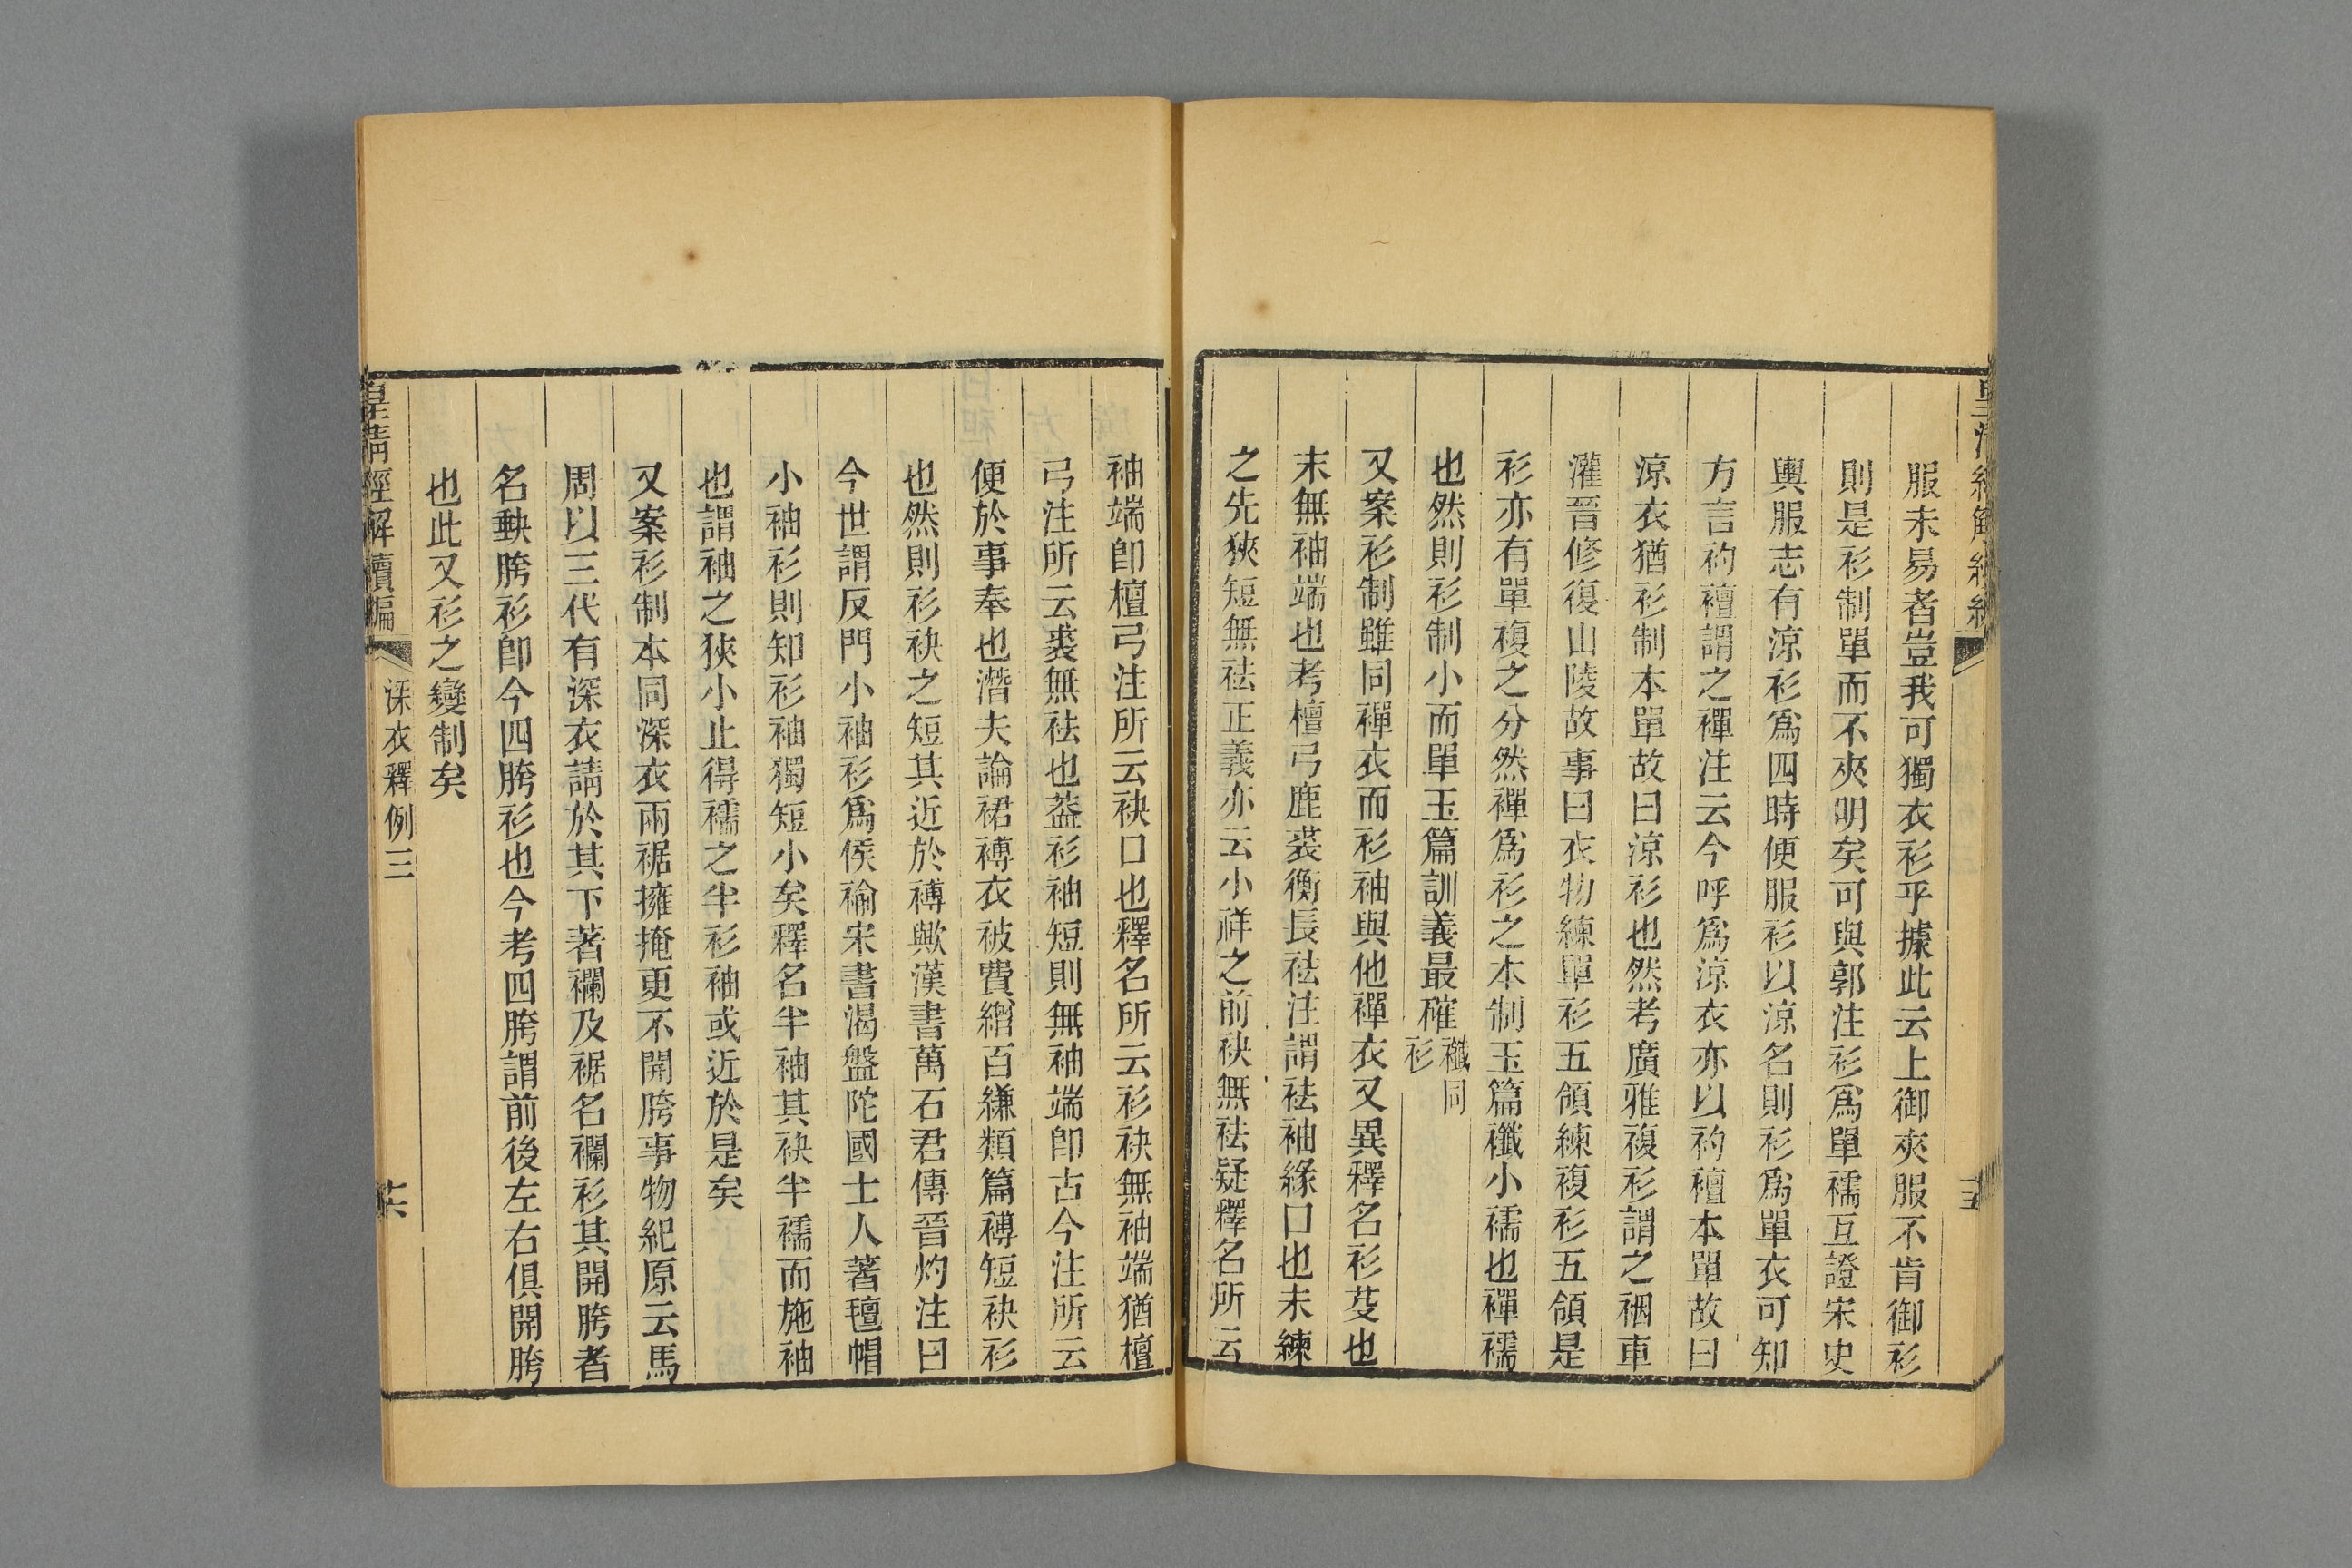 服未易者豈我可獨衣衫乎據此云上御夾服不肯御衫
則是衫制單而不夾明矣可與郭注衫爲單襦互證宋史
輿服志有涼衫爲四時便服衫以涼名則衫爲單衣可知
方言礿襢謂之襌注云今呼爲涼衣亦以礿襢本單故曰
涼衣猶衫制本單故曰涼衫也然考廣雅複衫謂之裀車
灌晉修復山陵故事曰衣物練單衫五領練複衫五領是
衫亦有單複之分然襌爲衫之本制玉篇襳小襦也襌襦
也然則衫制小而單玉篇訓義最確襳同
衫
又案衫制雖同襌衣而衫袖與他襌衣又異釋名衫芟也
末無袖端也考檀弓鹿裘衡長袪注謂袪袖緣口也未練
之先狹短無袪正義亦云小祥之前袂無袪疑釋名所云
袖端卽檀弓注所云袂口也釋名所云衫袂無袖端猶檀
弓注所云裘無袪也葢衫袖短則無袖端卽古今注所云
便於事奉也潛夫論裙襑衣被費繒百縑類篇襑短袂衫
也然則衫袂之短其近於襑歟漢書萬石君傳晉灼注曰
今世謂反門小袖衫爲侯褕宋書渴盤陀國士人著氊帽
小袖衫則知衫袖獨短小矣釋名半袖其袂半襦而施袖
也謂袖之狹小止得襦之半衫袖或近於是矣
又案衫制本同深衣兩裾擁掩更不開胯事物紀原云馬
周以三代有深衣請於其下著襴及裾名襴衫其開胯者
名䡈胯衫卽今四胯衫也今考四胯謂前後左右俱開胯
也此又衫之變制矣
皇清經解續編
深衣釋例三